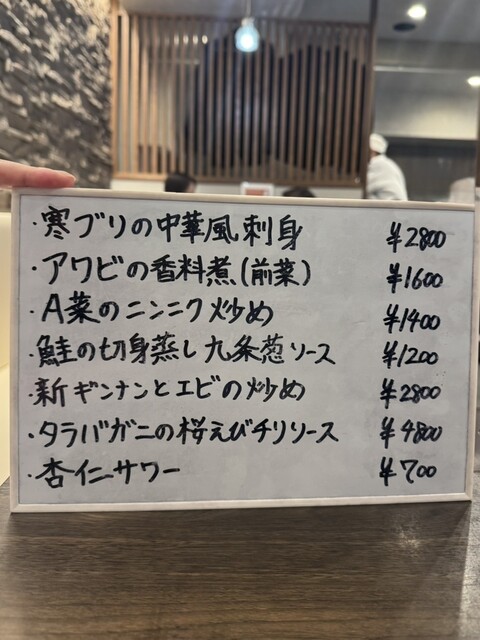 ・寒ブリの中華風刺身 ¥2800
・アワビの香料煮(前菜) ¥1600
・A菜のニンニク炒め ¥1400
・鮭の切身蒸し九条葱ソース ¥1200
・新ギンナンとエビの炒め ¥2800
・タラバガニの桜えびチリソース ¥4800
・杏仁サワー ¥700